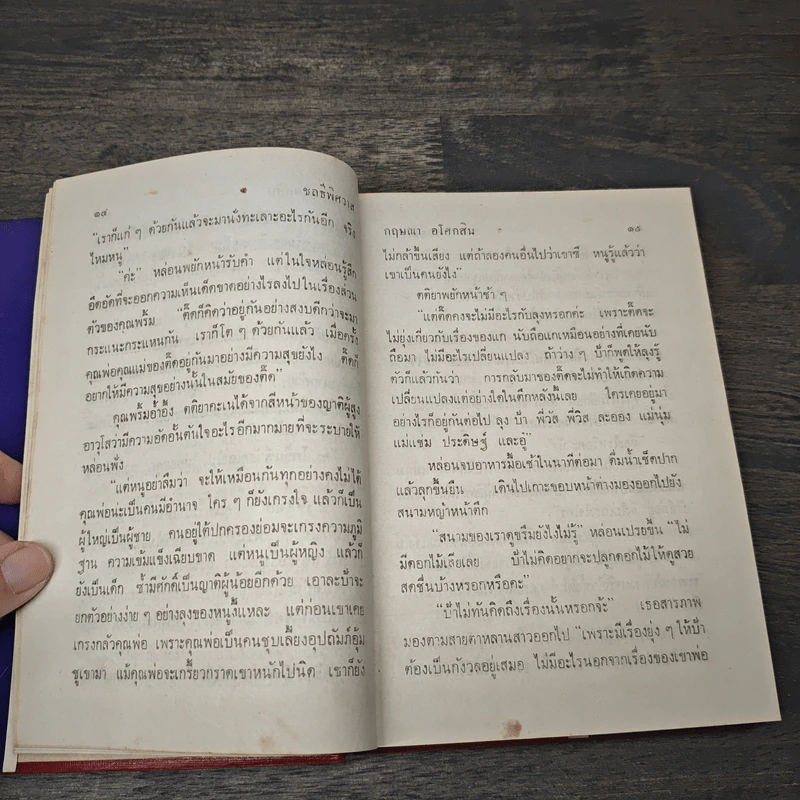 ๑๔
ชลธีพิศวาส
"เราก็แก่ ๆ ด้วยกันแล้วจะมานั่งทะเลาะอะไรกันอีก จริง
ไหมหนู"
"ค่ะ" หล่อนพยักหน้ารับคำ แต่ในใจหล่อนรู้สึก
อึดอัดที่จะออกความเห็นเด็ดขาดอย่างไรลงไปในเรื่องส่วน
ตัวของคุณพร้ม "ติ๊ดก็คิดว่าอยู่กันอย่างสงบดีกว่าจะมา
กระแนะกระแหนกัน เราก็โต ๆ ด้วยกันแล้ว เมื่อครั้ง
คุณพ่อคุณแม่ของติ๊ดอยู่กันมาอย่างมีความสุขยังไง ติ๊ดก็
อยากให้มีความสุขอย่างนั้นในสมัยของติ๊ด"
คุณพร้มอ้ำอึ้ง ตติยาคะเนได้จากสีหน้าของญาติผู้สูง
อาวุโสว่ามีความอัดอั้นตันใจอะไรอีกมากมายที่จะระบายให้
หล่อนฟัง
"แต่หนูอย่าลืมว่า จะให้เหมือนกันทุกอย่างคงไม่ได้
คุณพ่อนะเป็นคนมีอำนาจ ใคร ๆ ก็ยังเกรงใจ แล้วก็เป็น
ผู้ใหญ่เป็นผู้ชาย คนอยู่ใต้ปกครองย่อมจะเกรงความภูมิ
ฐาน ความเข้มแข็งเฉียบขาด แต่หนูเป็นผู้หญิง แล้วก็
ยังเป็นเด็ก ซ้ำมีศักดิ์เป็นญาติผู้น้อยอีกด้วย เอาละป้าจะ
ยกตัวอย่างง่าย ๆ อย่างลุงของหนูงี้แหละ แต่ก่อนเขาเคย
เกรงกลัวคุณพ่อ เพราะคุณพ่อเป็นคนชุบเลี้ยงอุปถัมภ์อุ้ม
ชูเขามา แม้คุณพ่อจะเกรี้ยวกราดเขาหนักไปนิด เขาก็ยัง
กฤษณา อโศกสิน
๑๕
ไม่กล้าขึ้นเสียง แต่ถ้าลองคนอื่นไปว่าเขาซี หนูรู้แล้วว่า
เขาเป็นคนยังไง"
ตติยาพยักหน้าช้า ๆ
"แต่ติ๊ดคงจะไม่มีอะไรกับลุงหรอกค่ะ เพราะติ๊ดจะ
ไม่ยุ่งเกี่ยวกับเรื่องของแก นับถือแกเหมือนอย่างที่เคยนับ
ถือมา ไม่มีอะไรเปลี่ยนแปลง ถ้าว่าง ๆ ป้าก็พูดให้ลุงรู้
ตัวก็แล้วกันว่า การกลับมาของติ๊ดจะไม่ทำให้เกิดความ
เปลี่ยนแปลงแต่อย่างใดในตึกหลังนี้เลย ใครเคยอยู่มา
อย่างไรก็อยู่กันต่อไป ลุง ป้า พี่วัส พี่วิส ละออง แม่นุ่ม
แม่แช่ม ประดิษฐ์ และอู๋"
หล่อนจบอาหารมื้อเช้าในนาทีต่อมา ดื่มน้ำเช็ดปาก
แล้วลุกขึ้นยืน เดินไปเกาะขอบหน้าต่างมองออกไปยัง
สนามหญ้าหน้าตึก
"สนามของเราดูขรึมยังไงไม่รู้" หล่อนเปรยขึ้น "ไม่
มีดอกไม้เสียเลย ป้าไม่คิดอยากจะปลูกดอกไม้ให้ดูสวย
สดชื่นบ้างหรอกหรือคะ"
"ป้าไม่ทันคิดถึงเรื่องนั้นหรอกจ้ะ" เธอสารภาพ
มองตามสายตาหลานสาวออกไป "เพราะมีเรื่องยุ่ง ๆ ให้ป้า
ต้องเป็นกังวลอยู่เสมอ ไม่มีอะไรนอกจากเรื่องของเขาพ่อ